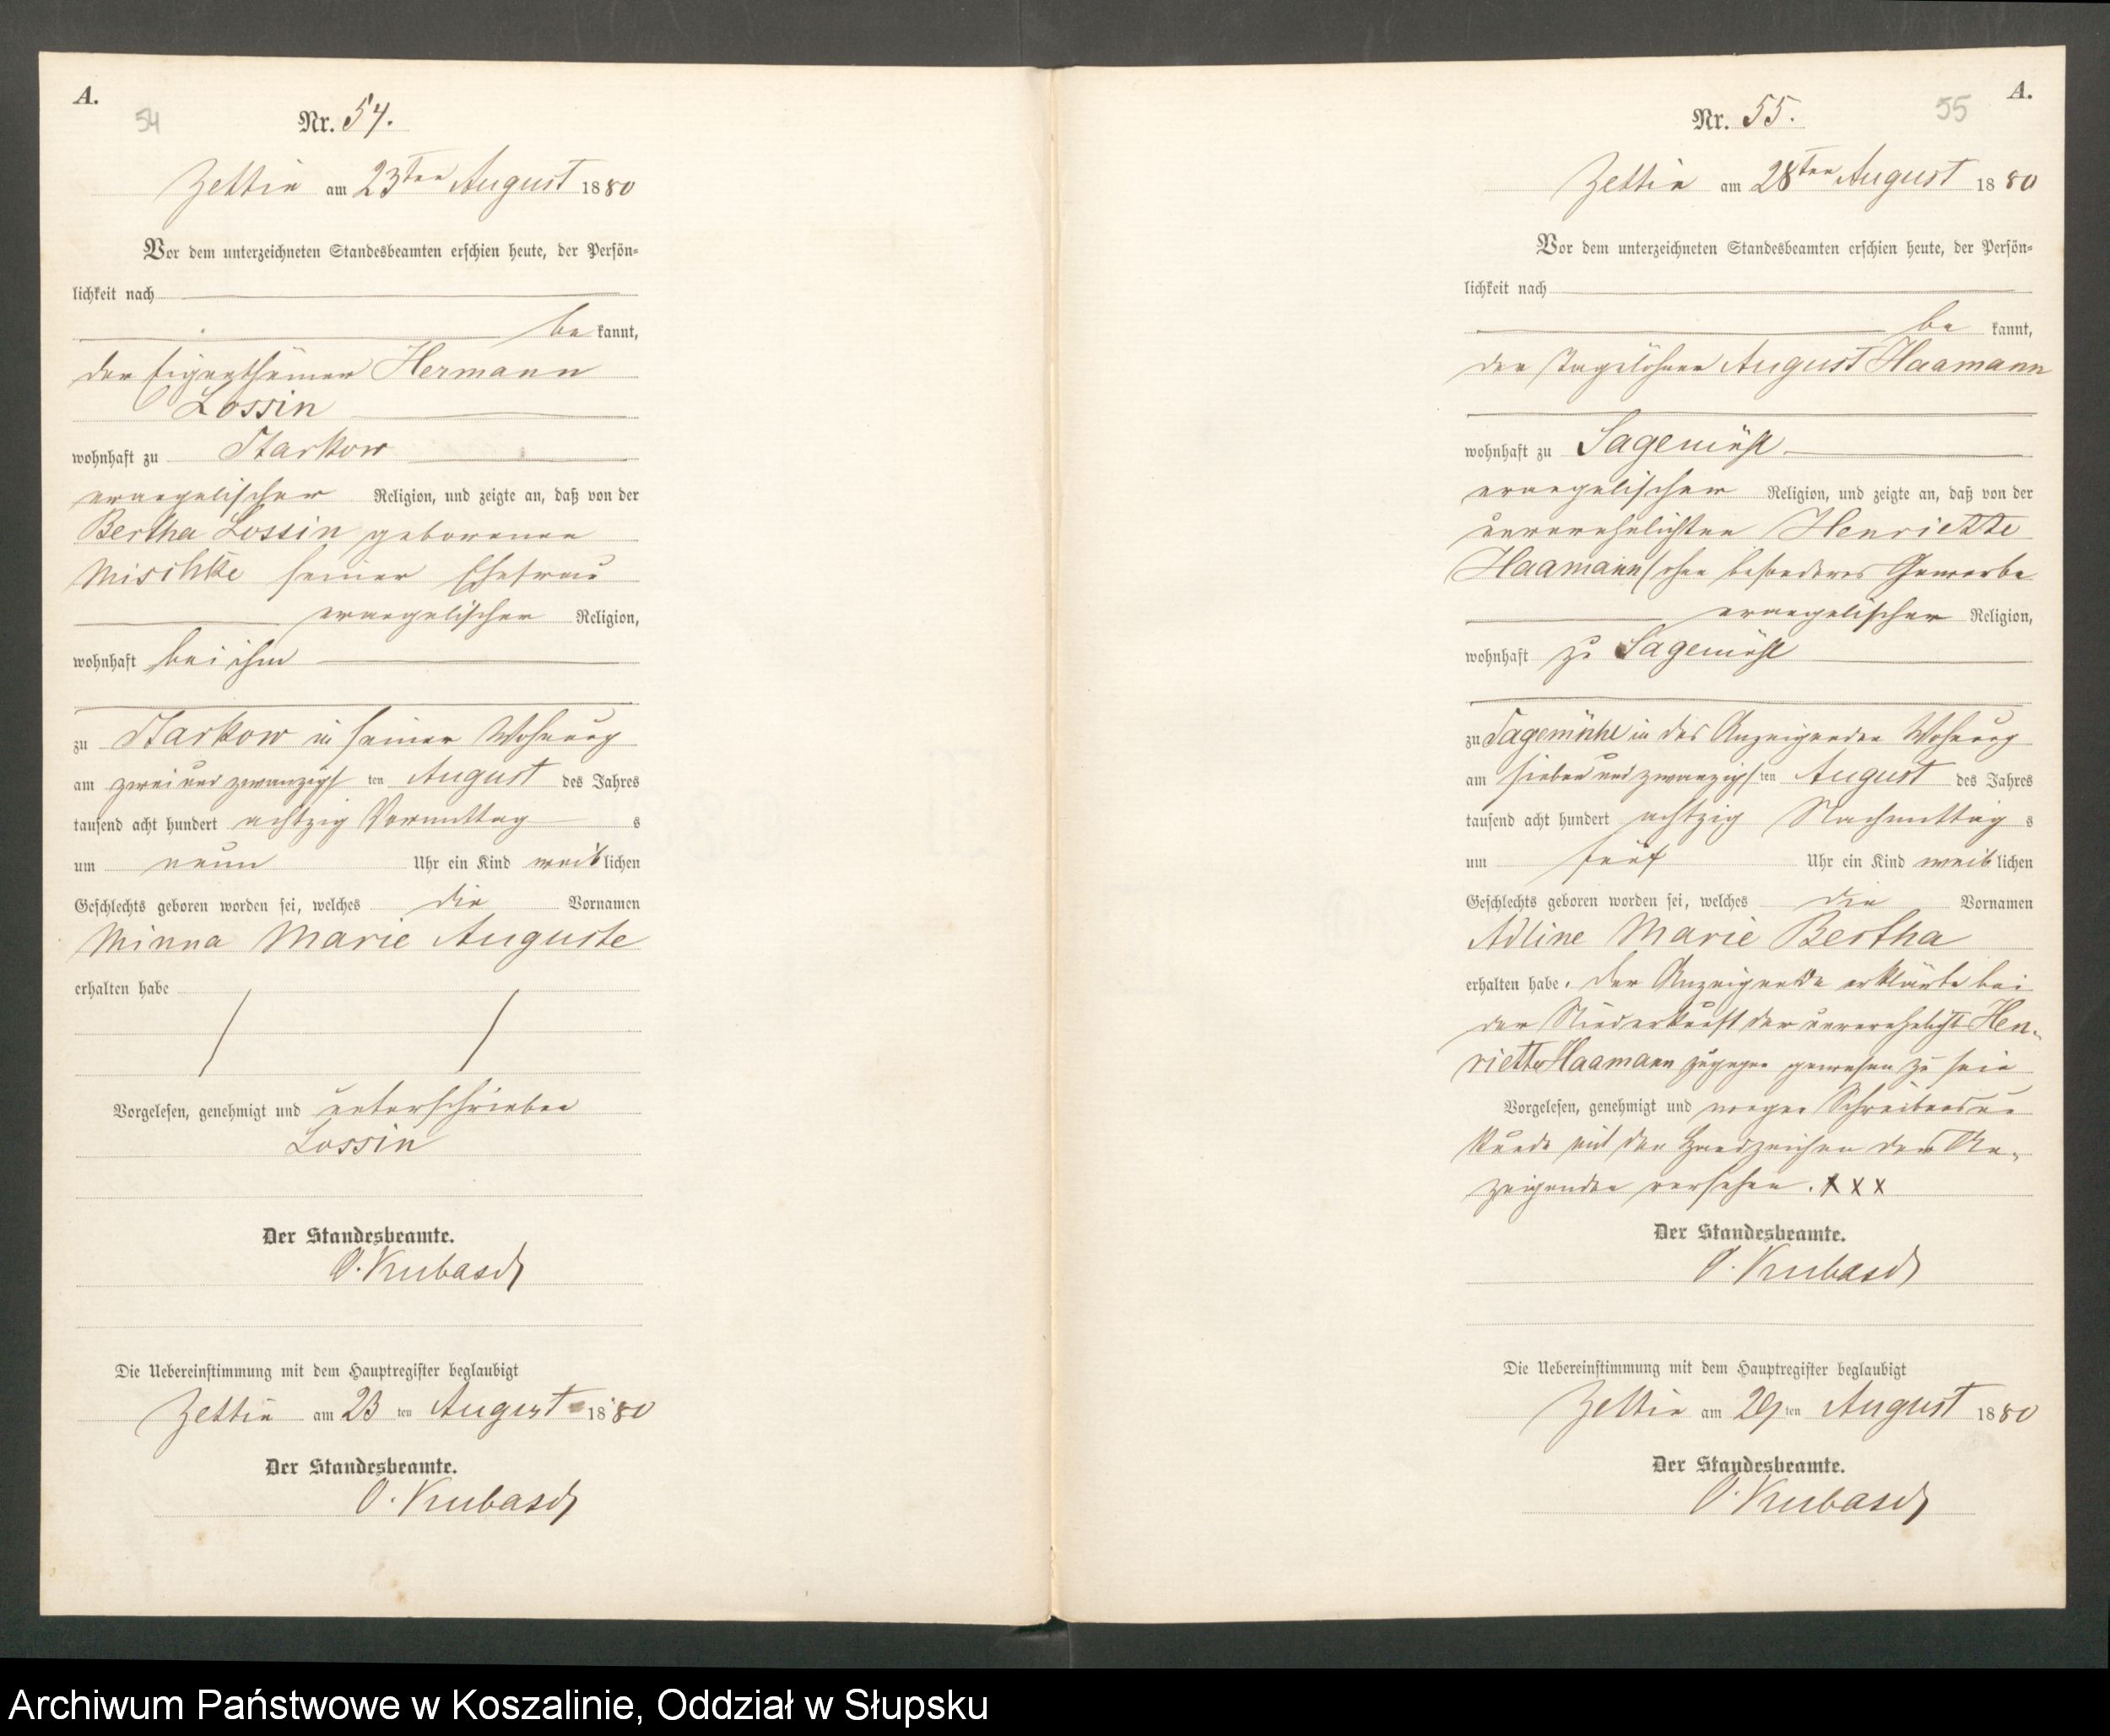 A.
54
Nr. 54.
Zettin am 23ten August 1880
Vor dem unterzeichneten Standesbeamten erschien heute, der Persön-
lichkeit nach
be kannt,
der Eigenthümer Hermann
Lossin
wohnhaft zu Starkow
evangelischer Religion, und zeigte an, daß von der
Bertha Lossin geborenen
Mischke seiner Ehefrau
evangelischer Religion,
wohnhaft bei ihm
zu Starkow in seiner Wohnung
am zwei und zwanzigsten August des Jahres
tausend acht hundert achtzig Vormittags
um neun Uhr ein Kind weiblichen
Geschlechts geboren worden sei, welches die Vornamen
Minna Marie Auguste
erhalten habe
Vorgelesen, genehmigt und unterschrieben
Lossin
Der Standesbeamte.
O. Kubasch
Die Uebereinstimmung mit dem Hauptregister beglaubigt
Zettin am 23 ten August 1880
Der Standesbeamte.
O. Kubasch
A.
55
Nr. 55.
Zettin am 28ten August 1880
Vor dem unterzeichneten Standesbeamten erschien heute, der Persön-
lichkeit nach
be kannt,
der Tagelöhner August Haamann
wohnhaft zu Sagemühl
evangelischer Religion, und zeigte an, daß von der
unverehelichten Henriette
Haamann ohne besonderes Gewerbe
evangelischer Religion,
wohnhaft zu Sagemühl
zu Sagemühl in des Anzeigenden Wohnung
am sieben und zwanzigsten August des Jahres
tausend acht hundert achtzig Nachmittags
um fünf Uhr ein Kind weiblichen
Geschlechts geboren worden sei, welches die Vornamen
Adline Marie Bertha
erhalten habe. Der Anzeigende erklärte bei
der Niederkunft der unverehelicht Hen-
riette Haamann zugegen gewesen zu sein
Vorgelesen, genehmigt und wegen Schreibensun
kunde mit den Handzeichen des An-
zeigenden versehen. XXX
Der Standesbeamte.
O. Kubasch
Die Uebereinstimmung mit dem Hauptregister beglaubigt
Zettin am 29 ten August 1880
Der Standesbeamte.
O. Kubasch
Archiwum Państwowe w Koszalinie, Oddział w Słupsku